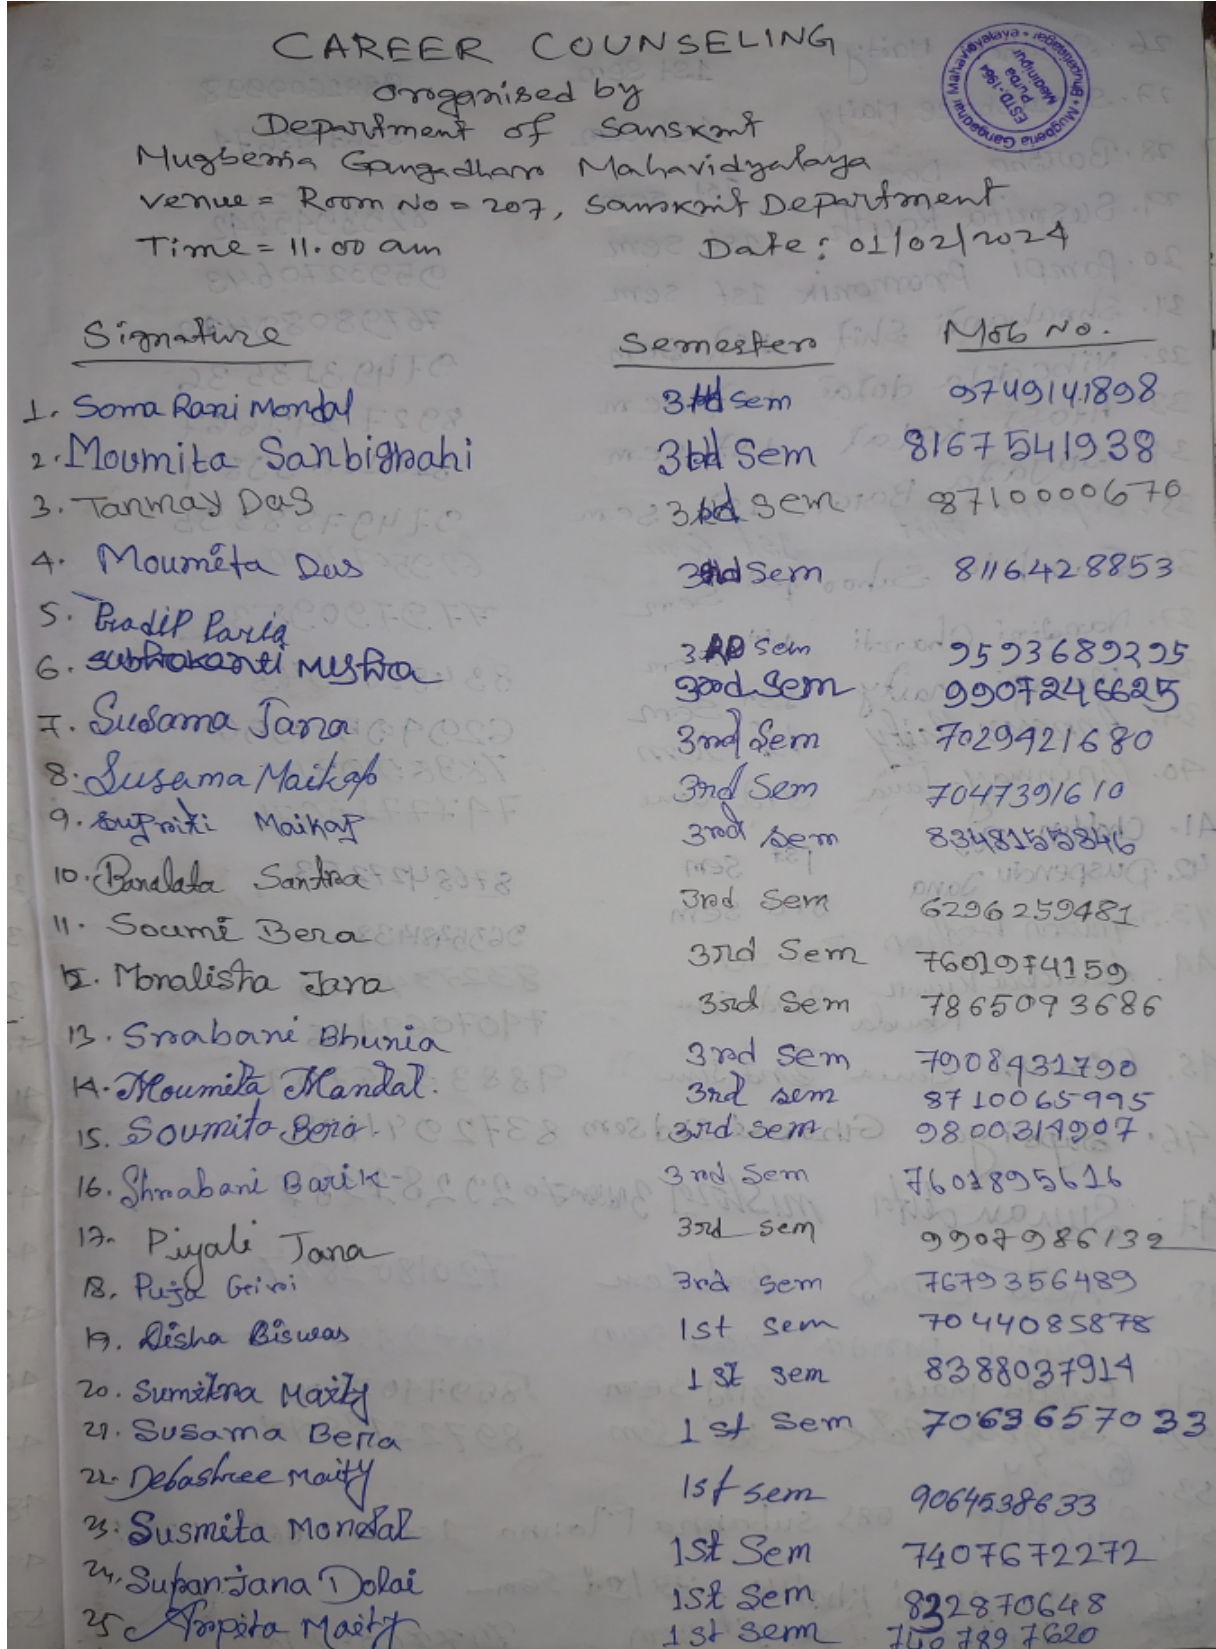 CAREER COUNSELING
organised by
Department of Sanskrit
Mugberia Gangadhar Mahavidyalaya
Venue = Room No = 207, Sanskrit Department
Time = 11.00 am Date : 01/02/2024
Mugberia Gangadhar Mahavidyalaya • Bhupatinagar •
ESTD-1964
Purba
Medinipur
Signature Semester Mob No.
1. Soma Rani Mondal 3rd Sem 9749141898
2. Moumita Sanbigrahi 3rd Sem 8167541938
3. Tanmay Das 3rd Sem 8710000670
4. Moumita Das 3rd Sem 8116428853
5. Pradip Paria 3RD Sem 9593689295
6. Subhrakanti Mishra 3rd Sem 9907246625
7. Susama Jana 3rd Sem 7029421680
8. Susama Maikap 3rd Sem 7047391610
9. Supriti Maikap 3rd Sem 8348155846
10. Banalata Santra 3rd Sem 6296259481
11. Soumi Bera 3rd Sem 7601974159
12. Monalisha Jana 3rd Sem 7865093686
13. Srabani Bhunia 3rd Sem 7908431790
14. Moumita Mandal. 3rd sem 8710065995
15. Soumita Bera. 3rd sem 9800314907
16. Shrabani Barik 3rd Sem 7601895616
17. Piyali Jana 3rd sem 9907986132
18. Puja Giri 3rd sem 7679356489
19. Disha Biswas 1st sem 7044085878
20. Sumitra Maity 1st sem 8388037914
21. Susama Bera 1st Sem 7063657033
22. Debashree Maity 1st sem 9064538633
23. Susmita Mondal 1st Sem 7407672272
24. Supanjana Dolai 1st Sem 832870648
25 Arpita Maity 1st Sem 7897620